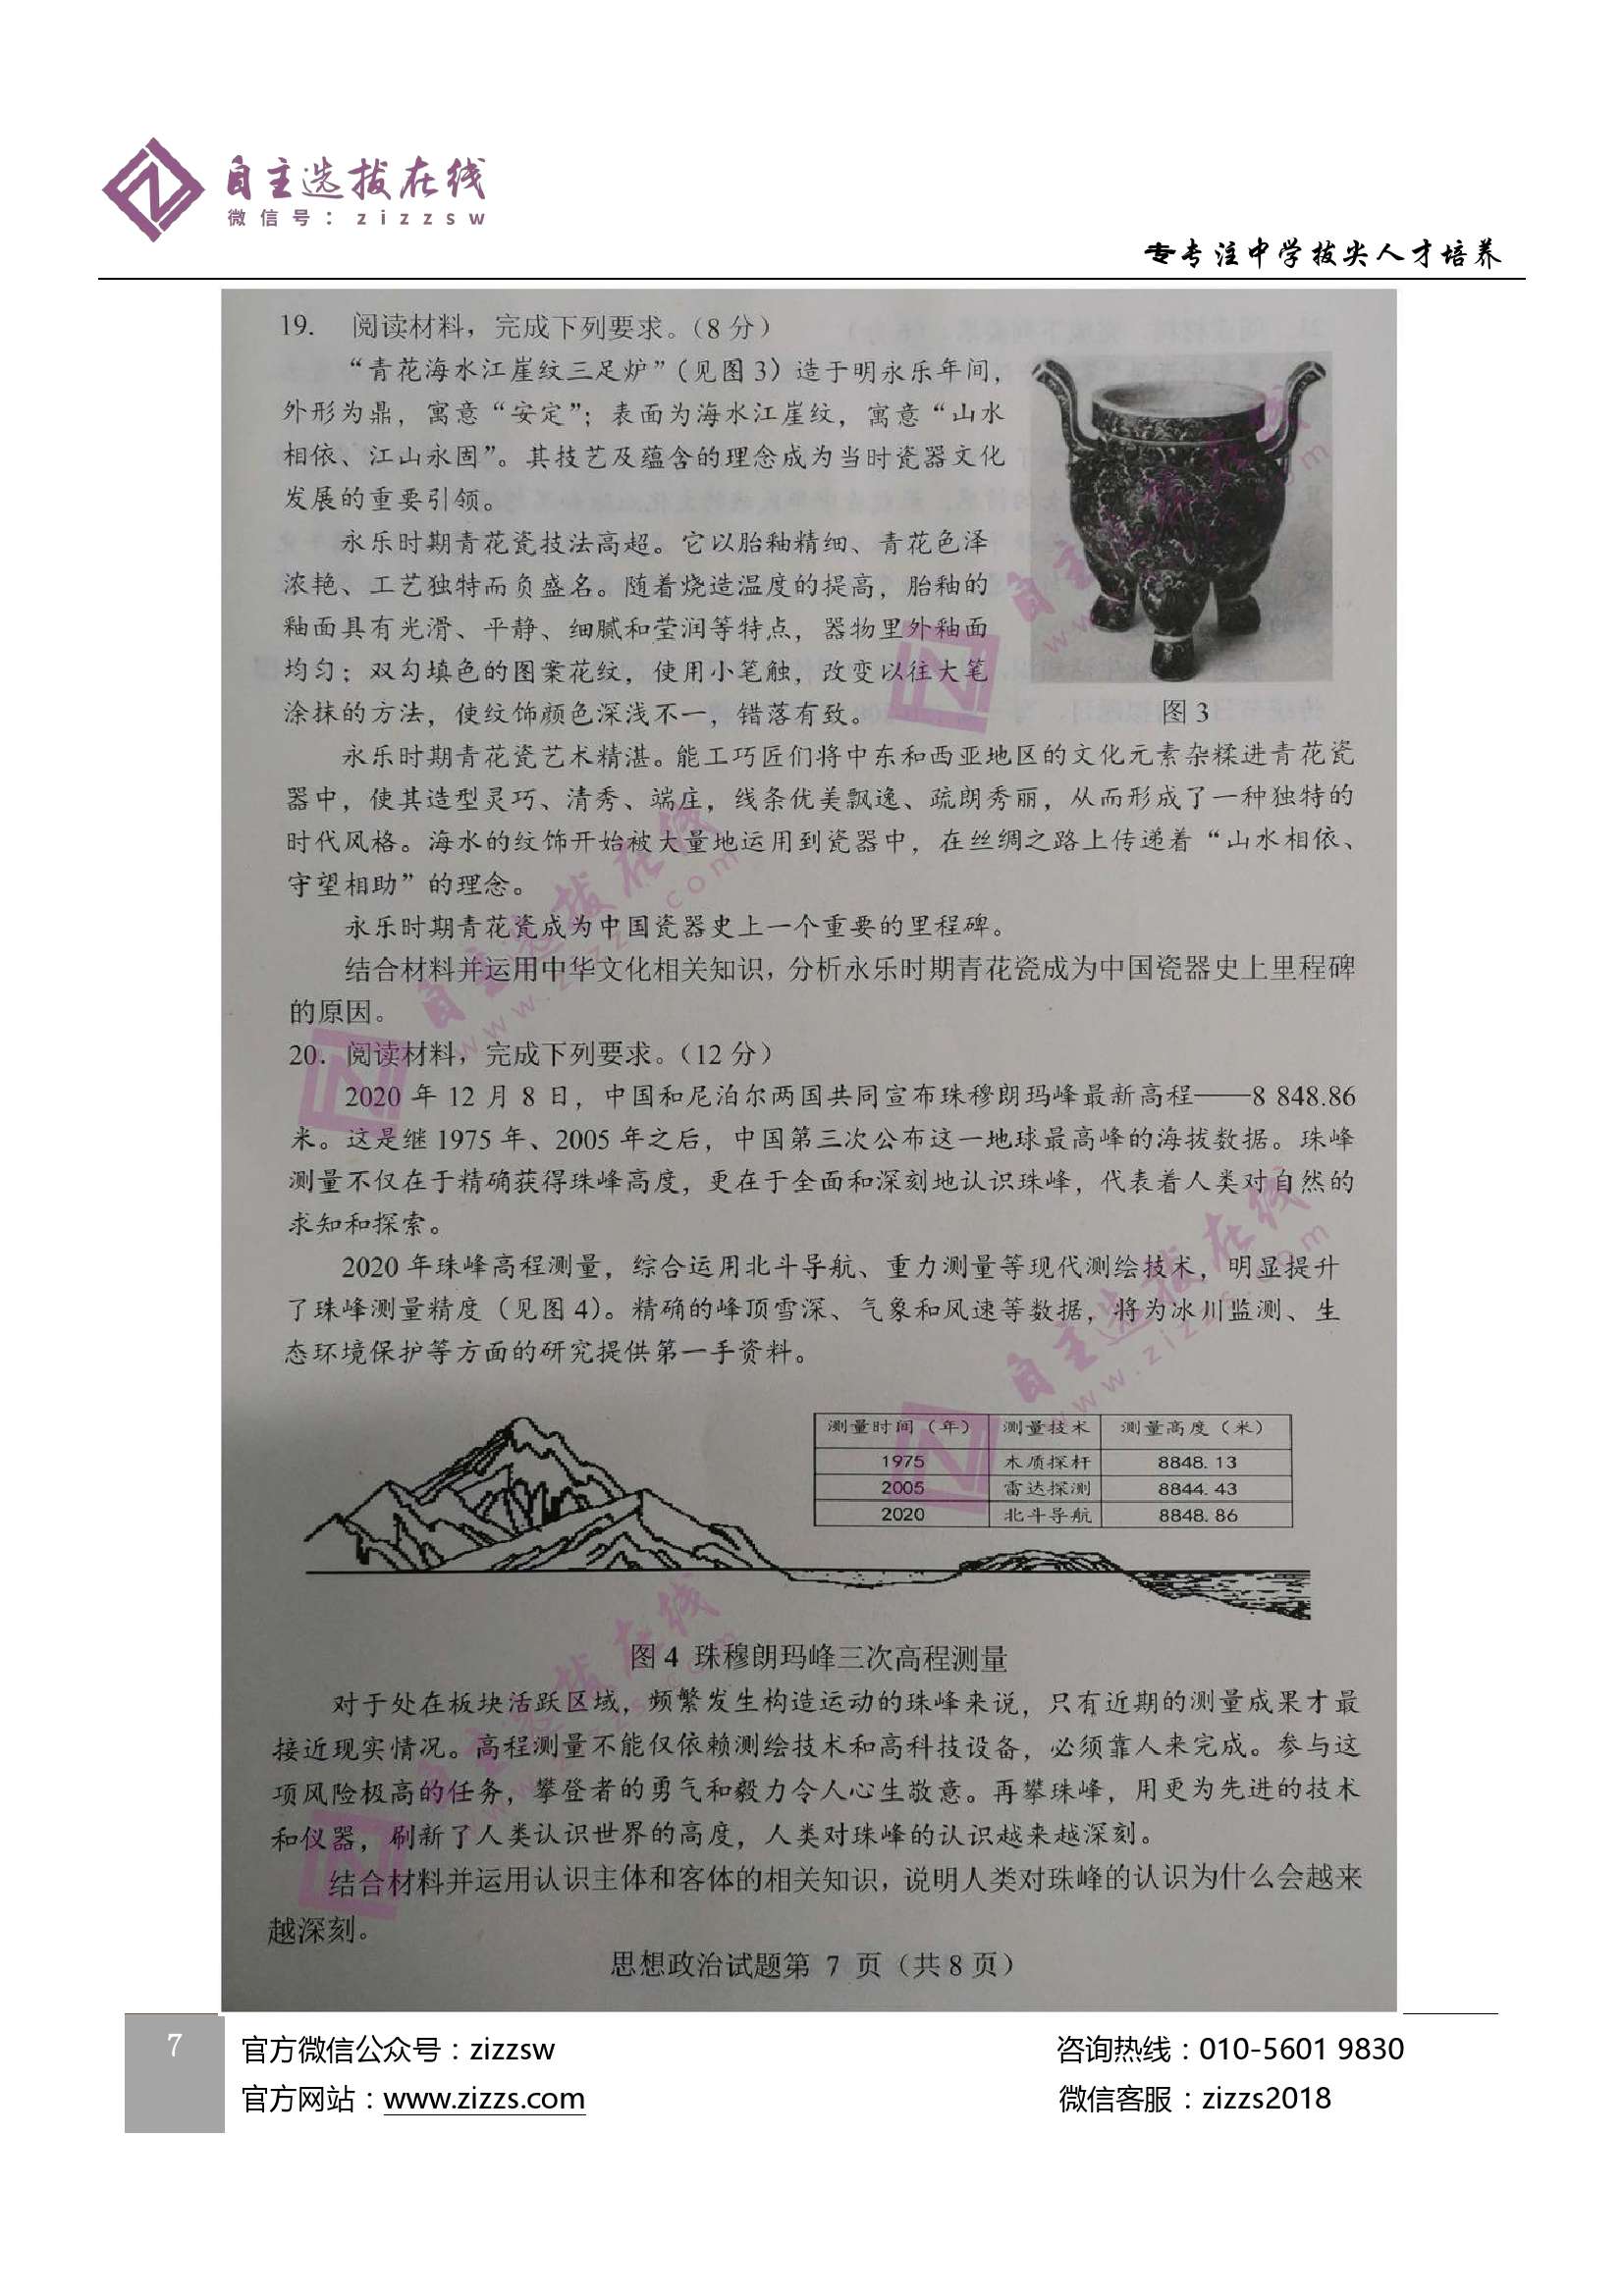 自主选拔在线
微信号：zizzsw
专专注中学拔尖人才培养
19. 阅读材料，完成下列要求。（8 分）
“青花海水江崖纹三足炉”（见图 3）造于明永乐年间，
外形为鼎，寓意“安定”；表面为海水江崖纹，寓意“山水
相依、江山永固”。其技艺及蕴含的理念成为当时瓷器文化
发展的重要引领。
永乐时期青花瓷技法高超。它以胎釉精细、青花色泽
浓艳、工艺独特而负盛名。随着烧造温度的提高，胎釉的
釉面具有光滑、平静、细腻和莹润等特点，器物里外釉面
均匀；双勾填色的图案花纹，使用小笔触，改变以往大笔
涂抹的方法，使纹饰颜色深浅不一，错落有致。
图 3
永乐时期青花瓷艺术精湛。能工巧匠们将中东和西亚地区的文化元素杂糅进青花瓷
器中，使其造型灵巧、清秀、端庄，线条优美飘逸、疏朗秀丽，从而形成了一种独特的
时代风格。海水的纹饰开始被大量地运用到瓷器中，在丝绸之路上传递着“山水相依、
守望相助”的理念。
永乐时期青花瓷成为中国瓷器史上一个重要的里程碑。
结合材料并运用中华文化相关知识，分析永乐时期青花瓷成为中国瓷器史上里程碑
的原因。
20. 阅读材料，完成下列要求。（12 分）
2020 年 12 月 8 日，中国和尼泊尔两国共同宣布珠穆朗玛峰最新高程——8 848.86
米。这是继 1975 年、2005 年之后，中国第三次公布这一地球最高峰的海拔数据。珠峰
测量不仅在于精确获得珠峰高度，更在于全面和深刻地认识珠峰，代表着人类对自然的
求知和探索。
2020 年珠峰高程测量，综合运用北斗导航、重力测量等现代测绘技术，明显提升
了珠峰测量精度（见图 4）。精确的峰顶雪深、气象和风速等数据，将为冰川监测、生
态环境保护等方面的研究提供第一手资料。
测量时间（年） 测量技术 测量高度（米）
1975 木质探杆 8848.13
2005 雷达探测 8844.43
2020 北斗导航 8848.86
图 4 珠穆朗玛峰三次高程测量
对于处在板块活跃区域，频繁发生构造运动的珠峰来说，只有近期的测量成果才最
接近现实情况。高程测量不能仅依赖测绘技术和高科技设备，必须靠人来完成。参与这
项风险极高的任务，攀登者的勇气和毅力令人心生敬意。再攀珠峰，用更为先进的技术
和仪器，刷新了人类认识世界的高度，人类对珠峰的认识越来越深刻。
结合材料并运用认识主体和客体的相关知识，说明人类对珠峰的认识为什么会越来
越深刻。
思想政治试题第 7 页（共 8 页）
7
官方微信公众号：zizzsw
咨询热线：010-5601 9830
官方网站：www.zizzs.com
微信客服：zizzs2018